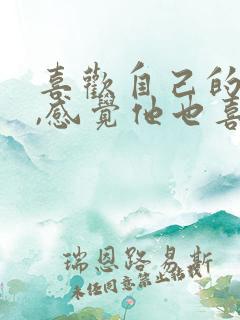 喜歡自己的
,感覺他也喜
瑞恩路易斯
未任同意禁止転載